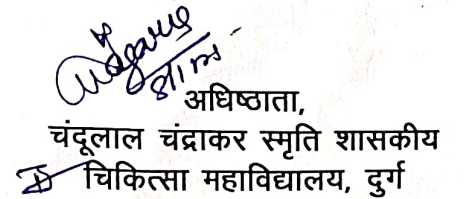 अधिष्ठाता,
चंदूलाल चंद्राकर स्मृति शासकीय
चिकित्सा महाविद्यालय, दुर्ग